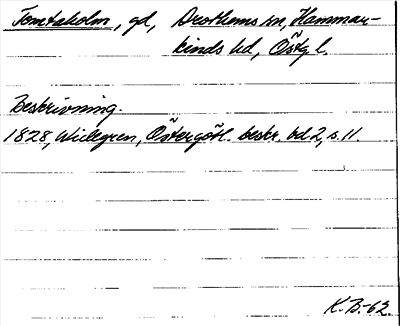 Tomtaholm, gd, Drothems sn, Hammar-
kinds hd, Östg l.
Beskrivning.
1828, Widegren, Östergötl. beskr. bd 2, s. 11.
K.B.-62.